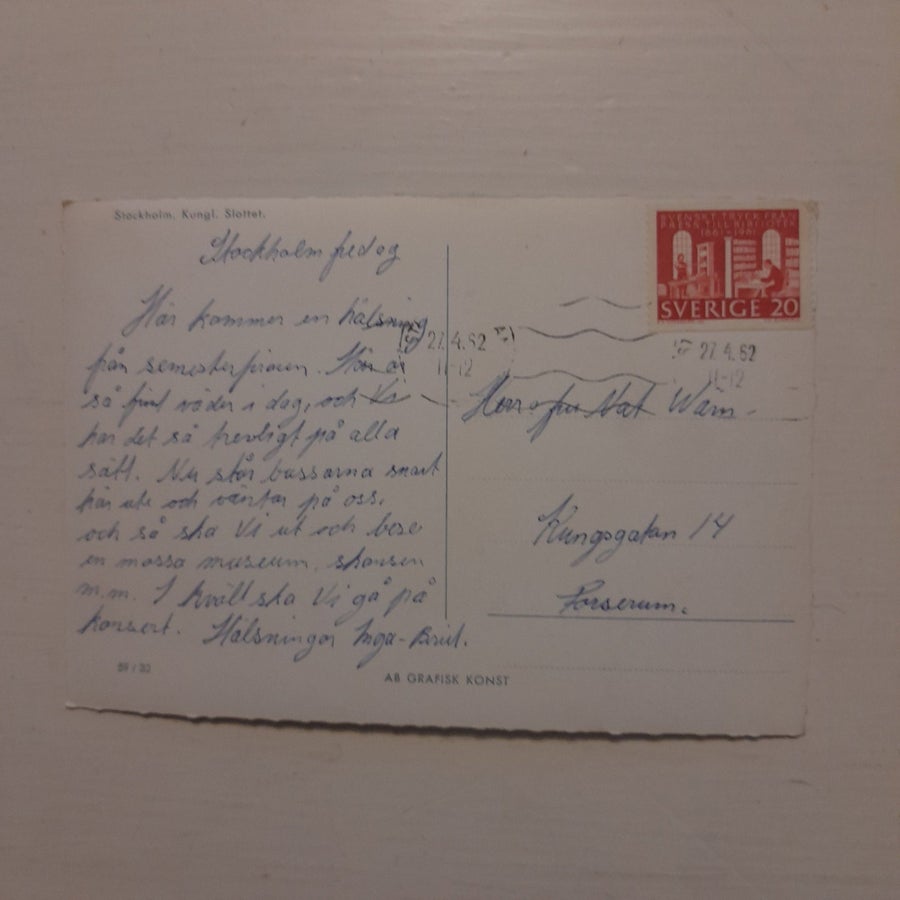 Stockholm. Kungl. Slottet.
Stockholm fredag
Här kommer en hälsning
från semesterfiraren. Här är
så fint väder i dag, och Vi
har det så trevligt på alla
sätt. Nu står bussarna snart
här ute och väntar på oss,
och så ska Vi ut och bese
en massa museum, skansen
m.m. I kväll ska Vi gå på
konsert. Hälsningar Inga-Berit.
59/30
AB GRAFISK KONST
SVENSKT TRYCK FRÅN
PRESS TILL BIBLIOTEK
1661-1961
SVERIGE 20
27.4.62
11-12
27.4.62
11-12
Herr o fru Nat Wärn.
Kungsgatan 14
Forserum.